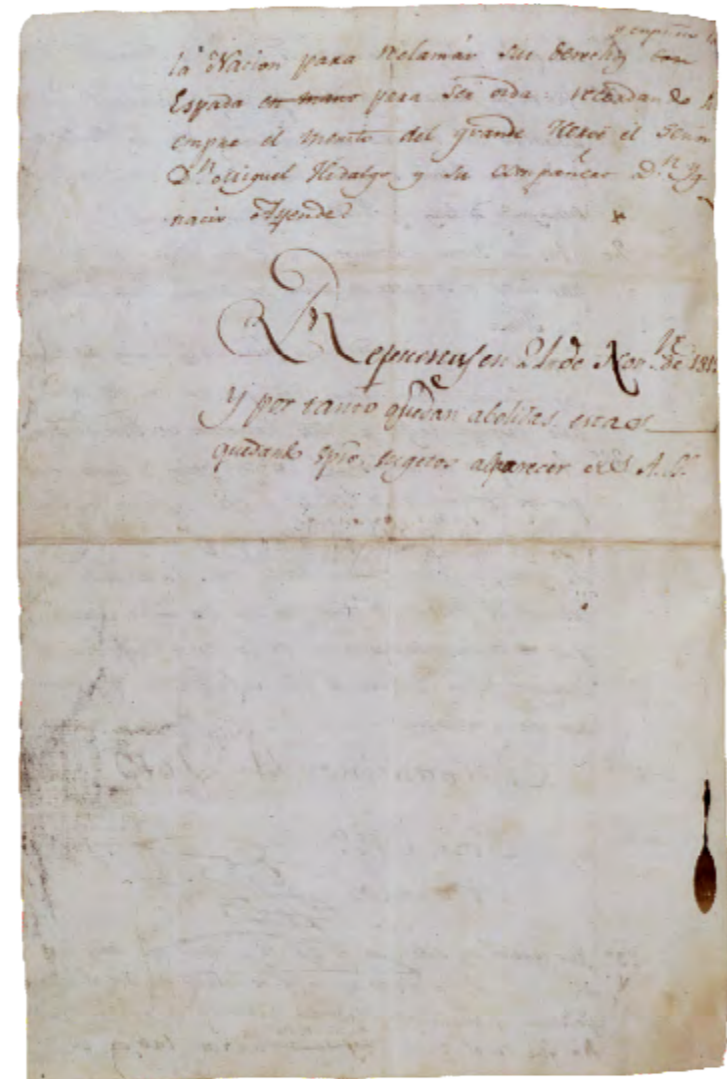 y empuña la
la Nacion para reclamár sus derechos con
Espada en mano para ser oida: recordando si
empre el merito del grande Heroe el Señor
Dn. Miguel Hidalgo y su compañero Dn. Yg
nacio Ayende
Repuestas en 21 de Nov.re de 181
Y por tanto quedan abolidas estas
quedando spre. sugetos al parecer de S. A. S.